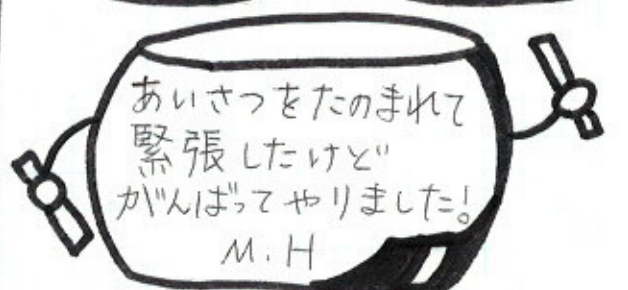 あいさつをたのまれて
緊張したけど
がんばってやりました!
M.H